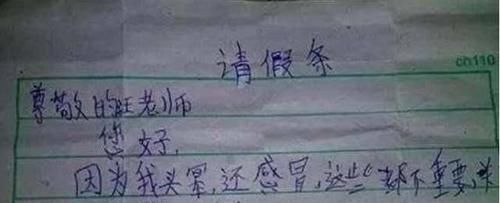 请假条
ch110
尊敬的旺老师
您好,
因为我头晕,还感冒,这些都不重要,